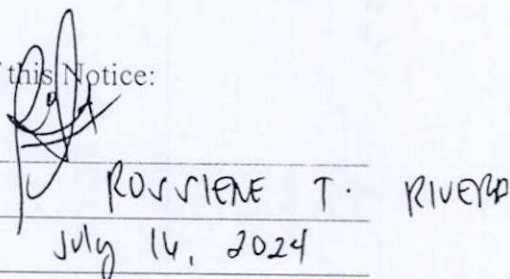 this Notice:
ROSSIENE T. RIVERA
July 16, 2024